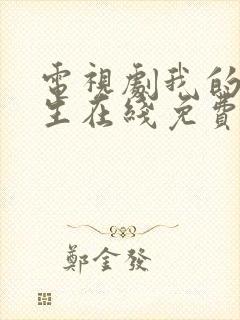 電視劇我的
生在綫免費
鄭金發